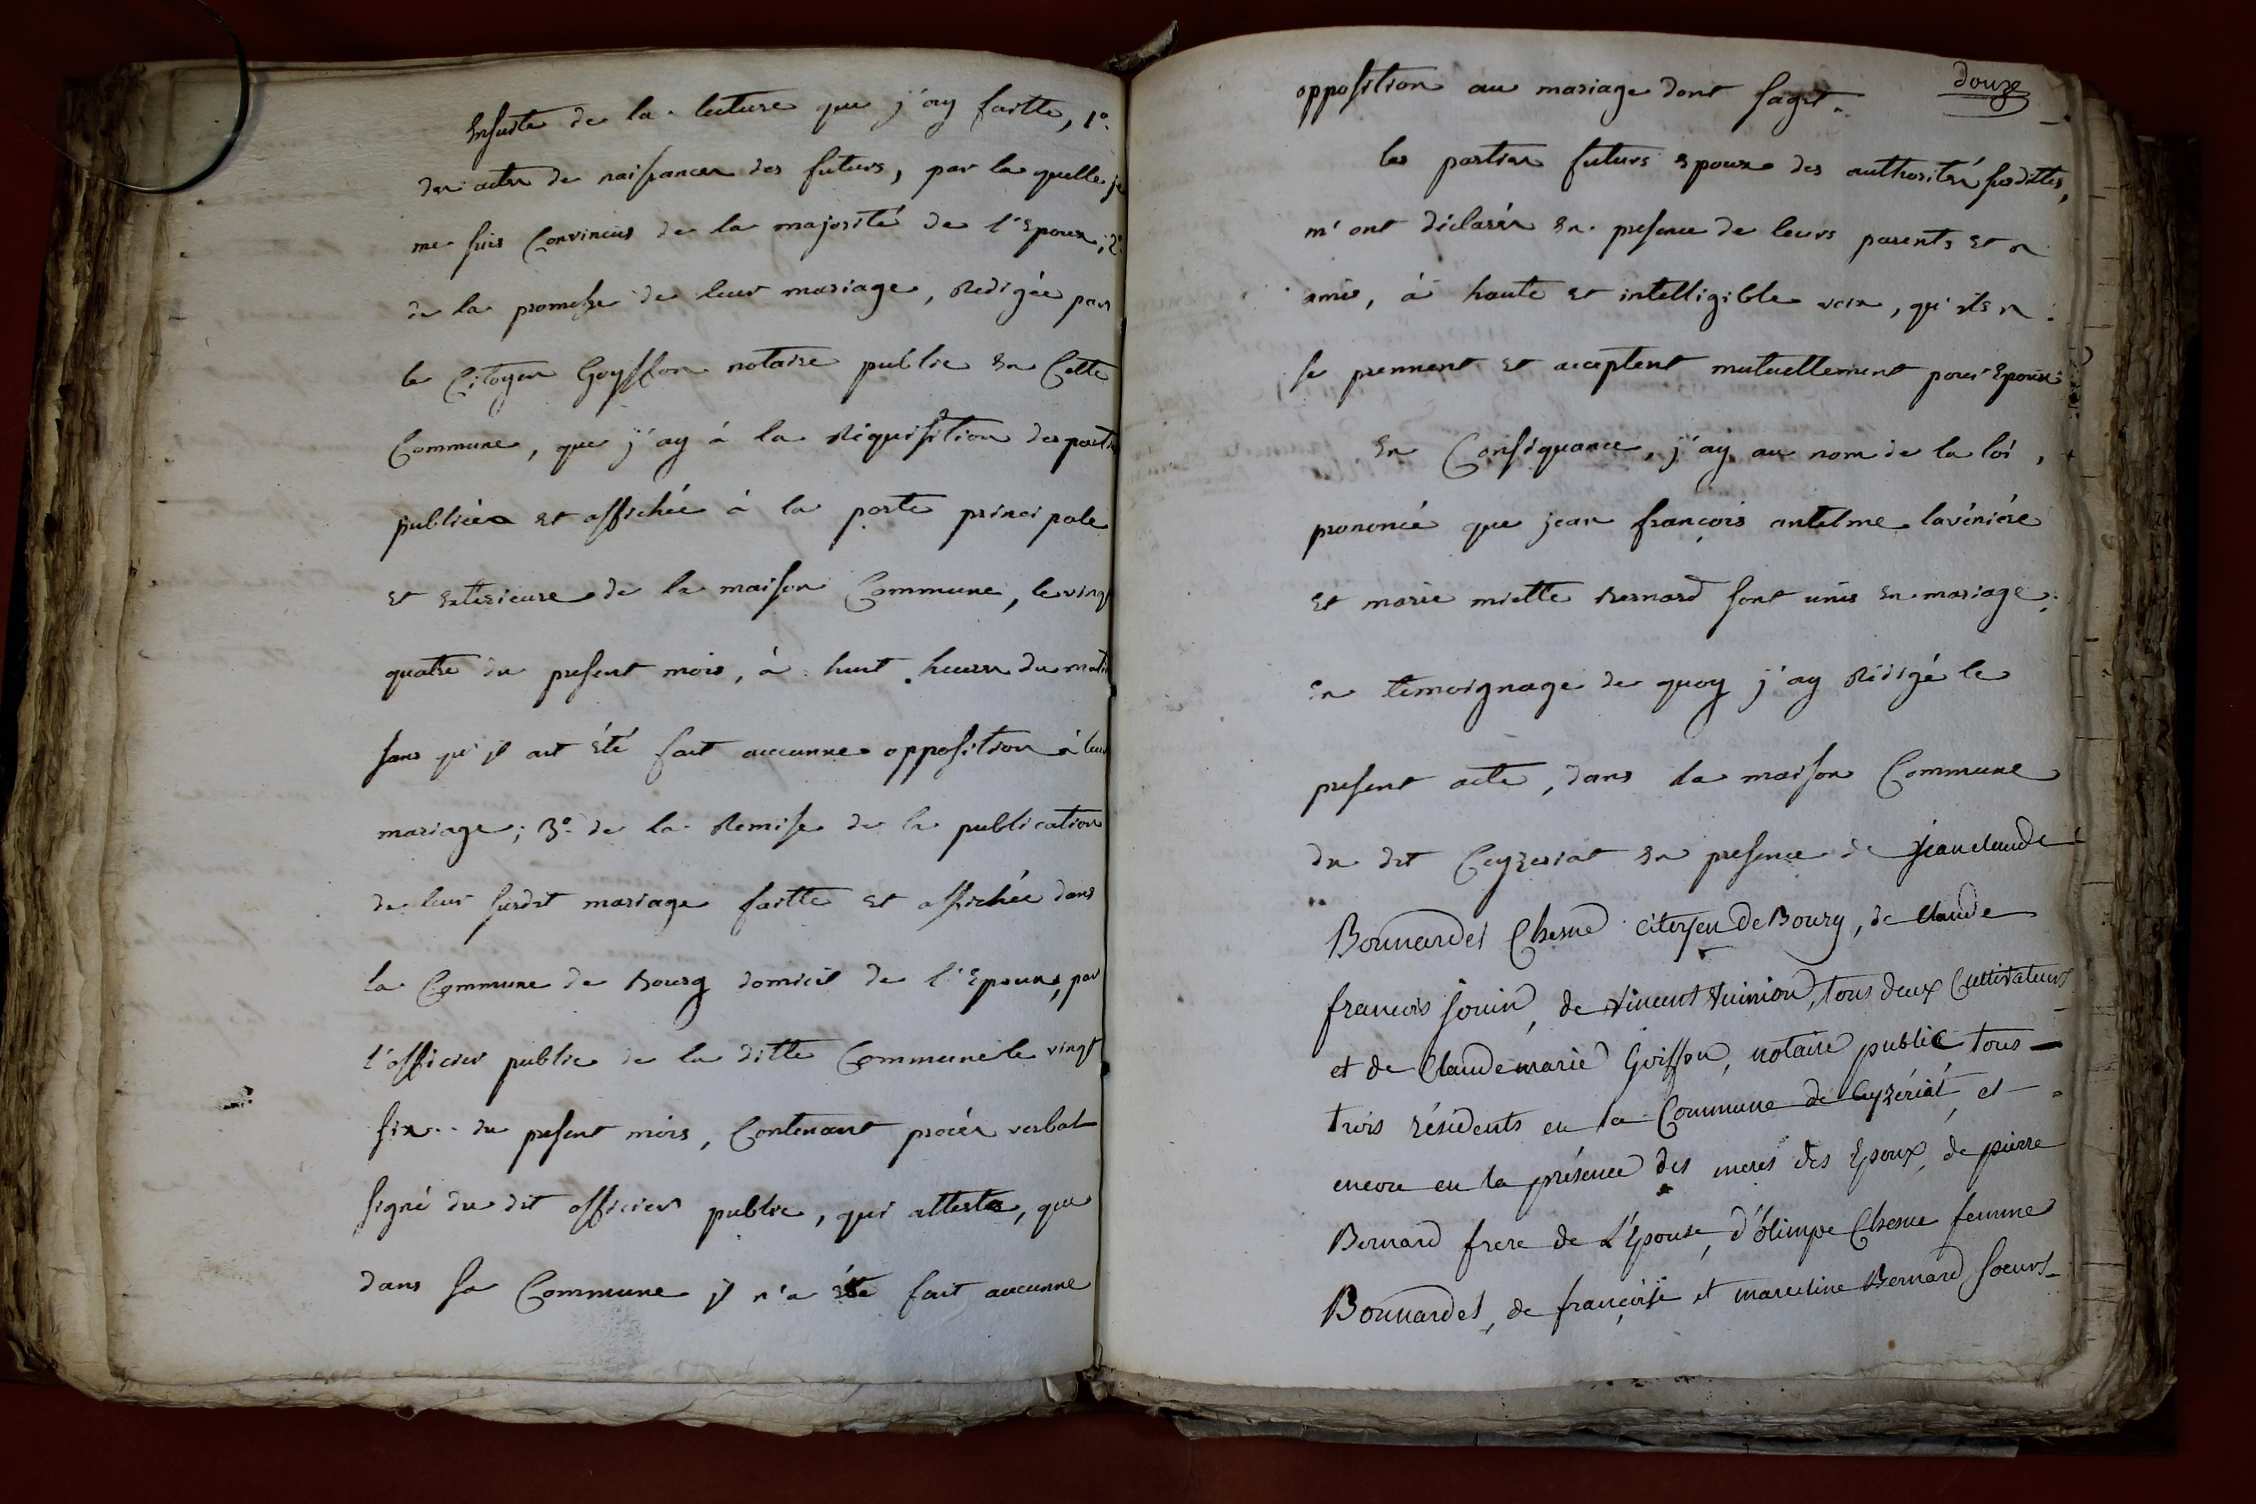 Ensuite de la lecture que j'ay faitte, 1°.
des actes de naissances des futurs, par la quelle je
me suis Convincus de la majorité de l'Epoux; 2°.
de la promesse de leur mariage, Redigée par
le Citoyen Goyffon notaire public en Cette
Commune, que j'ay à la Réquisition des partie
publiée et affichée à la porte principale
et exterieure de la maison Commune, le vingt
quatre du present mois, à huit heures du matin
sans qu'il ait été fait aucunne opposition à leur
mariage; 3°. de la Remise de la publication
de leur susdit mariage faitte et affichée dans
la Commune de Bourg domicil de l'Epoux, par
l'officier public de la ditte Commune le vingt
six du present mois, Contenant procès verbal
signé du dit officier public, qui atteste, que
dans sa Commune il n'a été fait aucunne
douze
opposition au mariage dont s'agit.
les parties futurs epoux des authorités susdittes,
m'ont déclarés en presence de leurs parents et
amis, à haute et intelligible voix, qu'ils
se prennent et acceptent mutuellement pour Epoux
En Conséquance, j'ay au nom de la loi,
prononcé que jean françois antelme lavénière
et marie miette Bernard sont unis en mariage;
en temoignage de quoy j'ay Rédigé le
present acte, dans la maison Commune
du dit Ceyzeriat en presence de jean claude
Bonnardel Chesne citoyen de Bourg, de Claude
francois jouin, de vincent vuinion, tous deux Cultivateurs
et de Claude marie Goiffon, notaire public tous
trois résidents en la Commune de Ceyzériat, et
encore en la présence des meres des Epoux, de pierre
Bernard frere de L'Epouse, d'olimpe Chesne femme
Bonnardel, de françoise et marceline Bernard soeurs